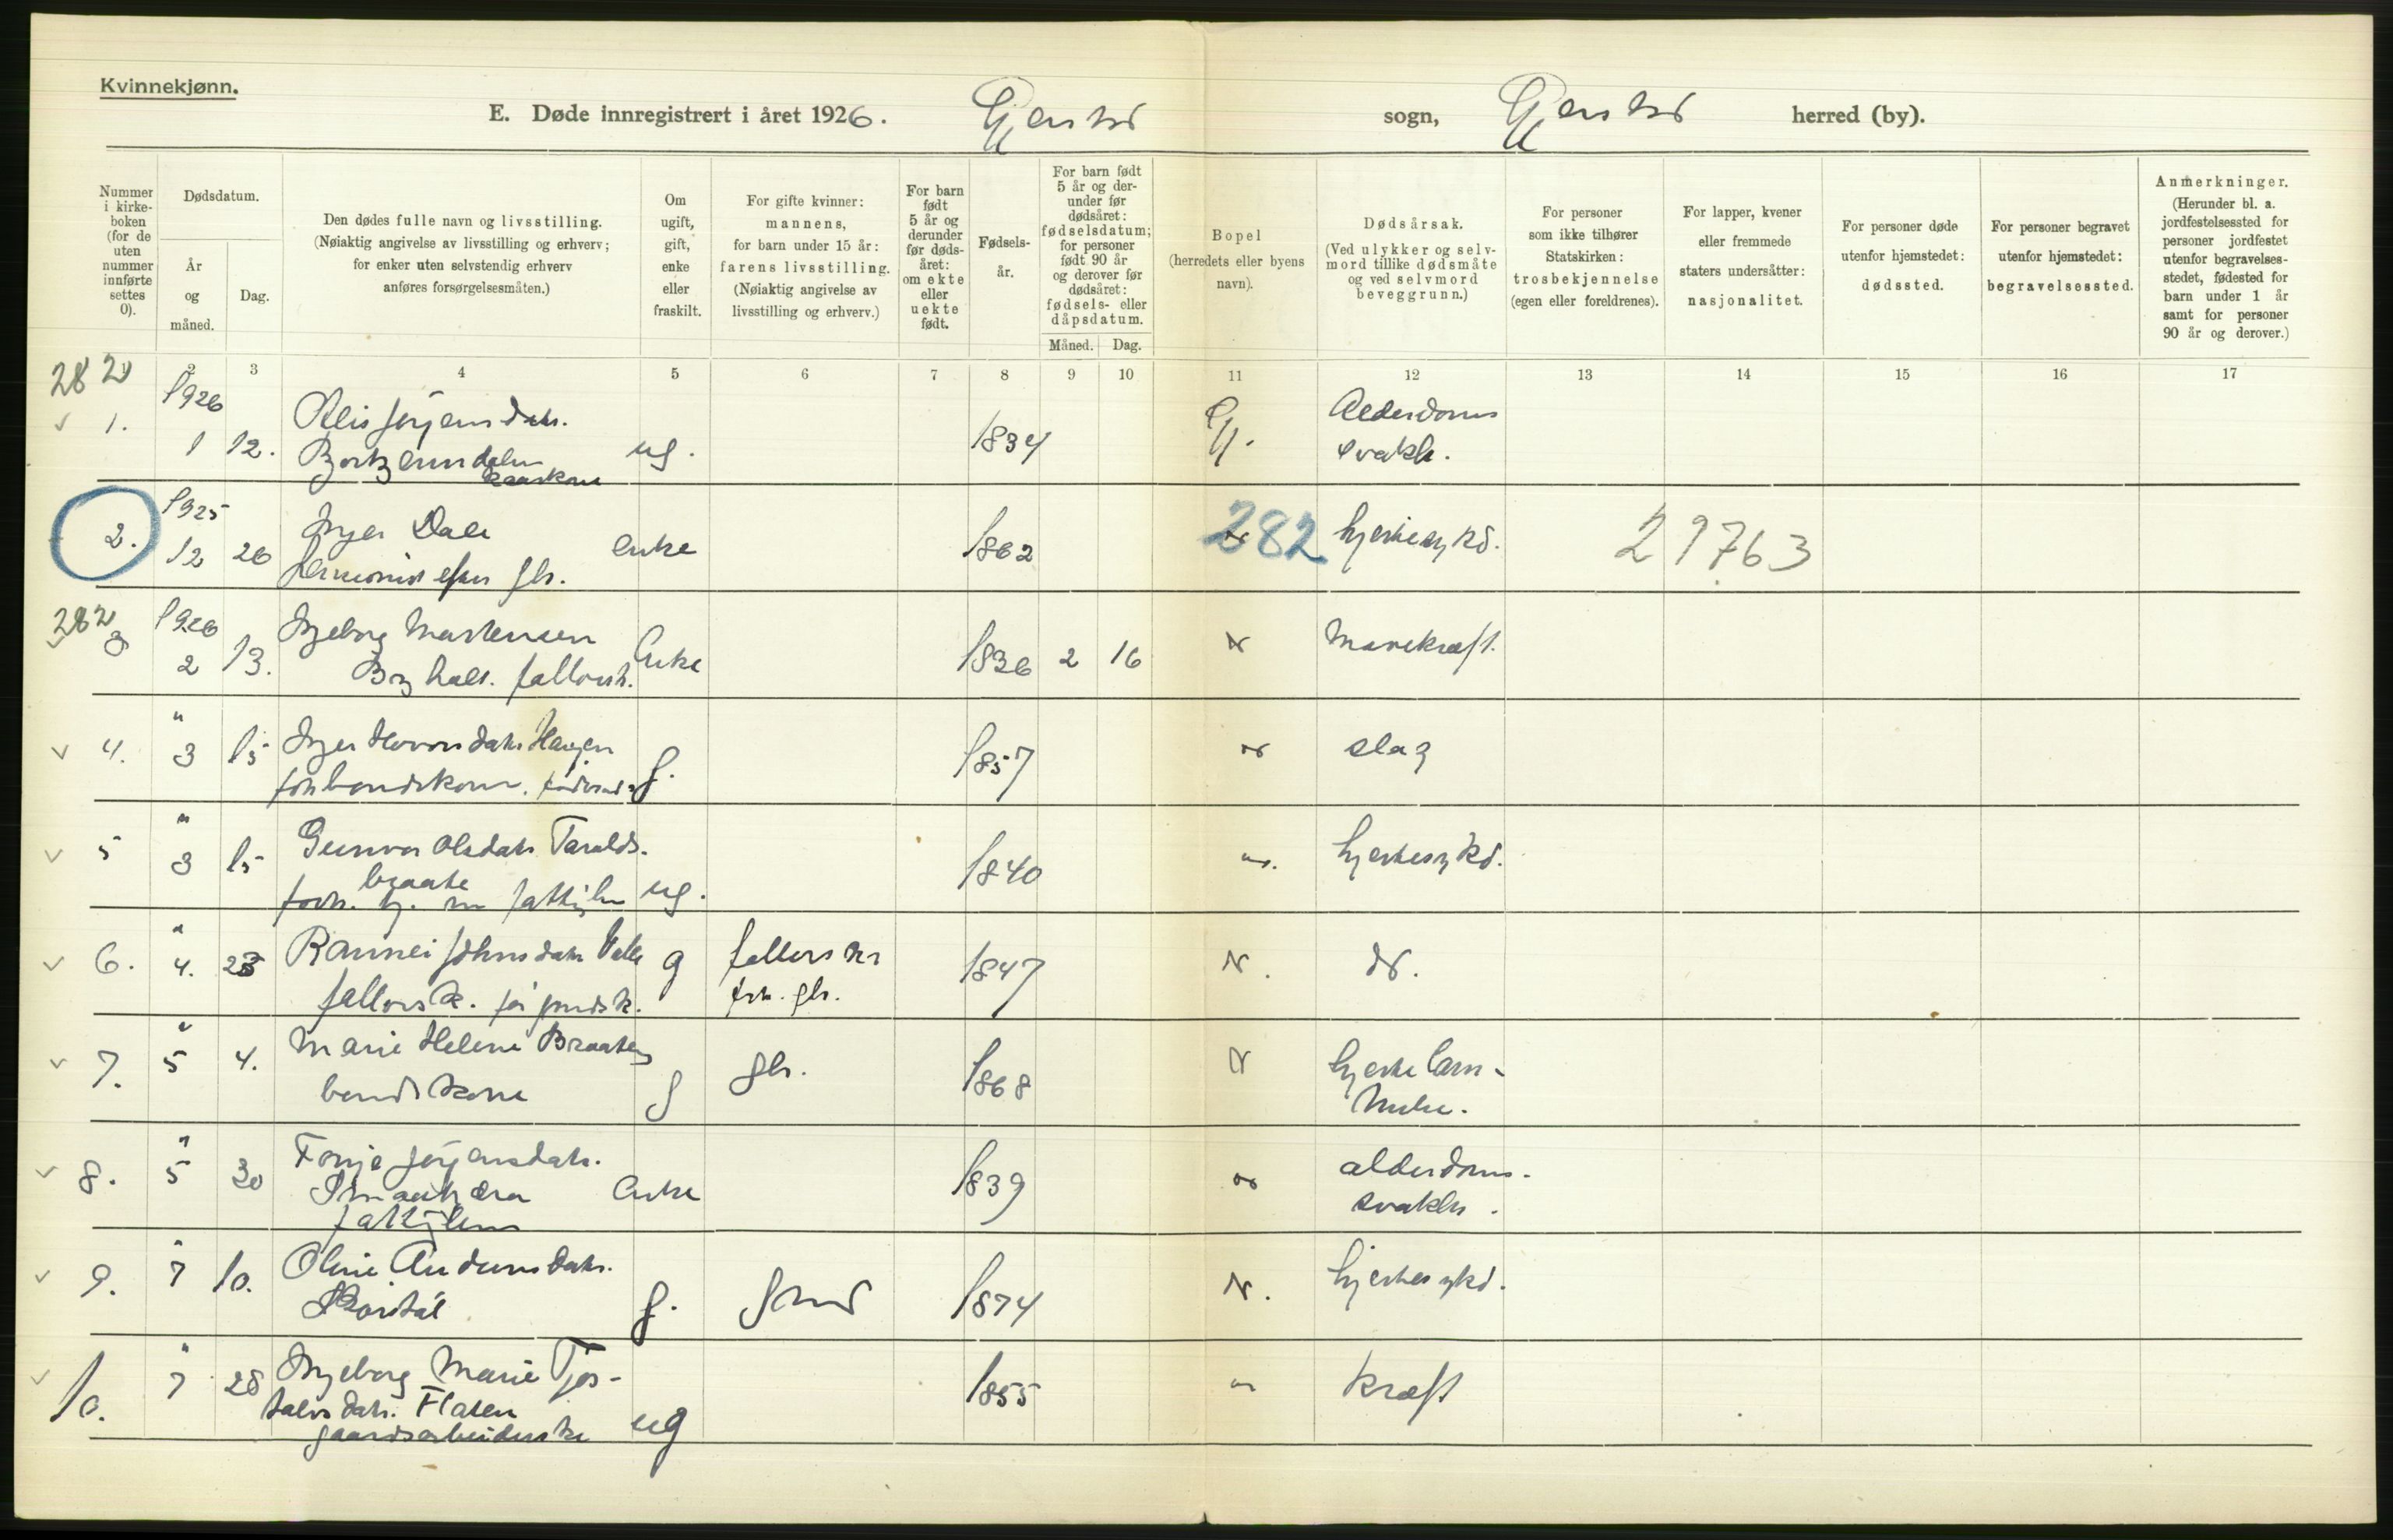 Kvinnekjønn.
E. Døde innregistrert i året 1926. Gjerstad sogn, Gjerstad herred (by).
Nummer i kirkeboken (for de uten nummer innførte settes 0).
Dødsdatum.
År og måned.
Dag.
Den dødes fulle navn og livsstilling.
(Nøiaktig angivelse av livsstilling og erhverv;
for enker uten selvstendig erhverv
anføres forsørgelsesmåten.)
Om ugift, gift, enke eller fraskilt.
For gifte kvinner:
mannens,
for barn under 15 år:
farens livsstilling.
(Nøiaktig angivelse av
livsstilling og erhverv.)
For barn født 5 år og derunder før dødsåret: om ekte eller uekte født.
Fødselsår.
For barn født 5 år og derunder før dødsåret: fødselsdatum; for personer født 90 år og derover før dødsåret: fødsels- eller dåpsdatum.
Måned. Dag.
Bopel
(herredets eller byens
navn).
Dødsårsak.
(Ved ulykker og selvmord tillike dødsmåte og ved selvmord beveggrunn.)
For personer
som ikke tilhører
Statskirken:
trosbekjennelse
(egen eller foreldrenes).
For lapper, kvener
eller fremmede
staters undersåtter:
nasjonalitet.
For personer døde
utenfor hjemstedet:
dødssted.
For personer begravet
utenfor hjemstedet:
begravelsessted.
Anmerkninger.
(Herunder bl. a.
jordfestelsessted for
personer jordfestet
utenfor begravelses-
stedet, fødested for
barn under 1 år
samt for personer
90 år og derover.)
2 3 4 5 6 7 8 9 10 11 12 13 14 15 16 17
282
1. 1926 1 12. Jørgensdatr. ug. 1834 Gj. Alderdoms
svakh.
2. 1925 12 26 Inger Dale enke 1862 282 hjertesykd. 29763
efter gbr.
282
3 1926 2 13. Ingeborg Martensen Enke 1836 2 16 Mavekræft.
4. " 3 15 Inger Haugen g. 1857 slag
5 " 3 15 Gunvor Olsdatr Taralds-
braate ug. 1840 hjertesykd.
6. " 4. 23 Rannei Johnsdatr g 1847
7. " 5 4. Marie Helene Braaten g gbr. 1868 hjertelam-
melse.
8. " 5 30 Tonje Jørgensdatr. Enke 1839 alderdoms-
svakhet.
9. " 7 10. Oline Andersdatr. g. 1874 hjertesykd.
10. " 7 28 Ingeborg Marie Tjøs-
talvsdatr. Flaten
gaardsarbeiderske ug 1855 " kræft